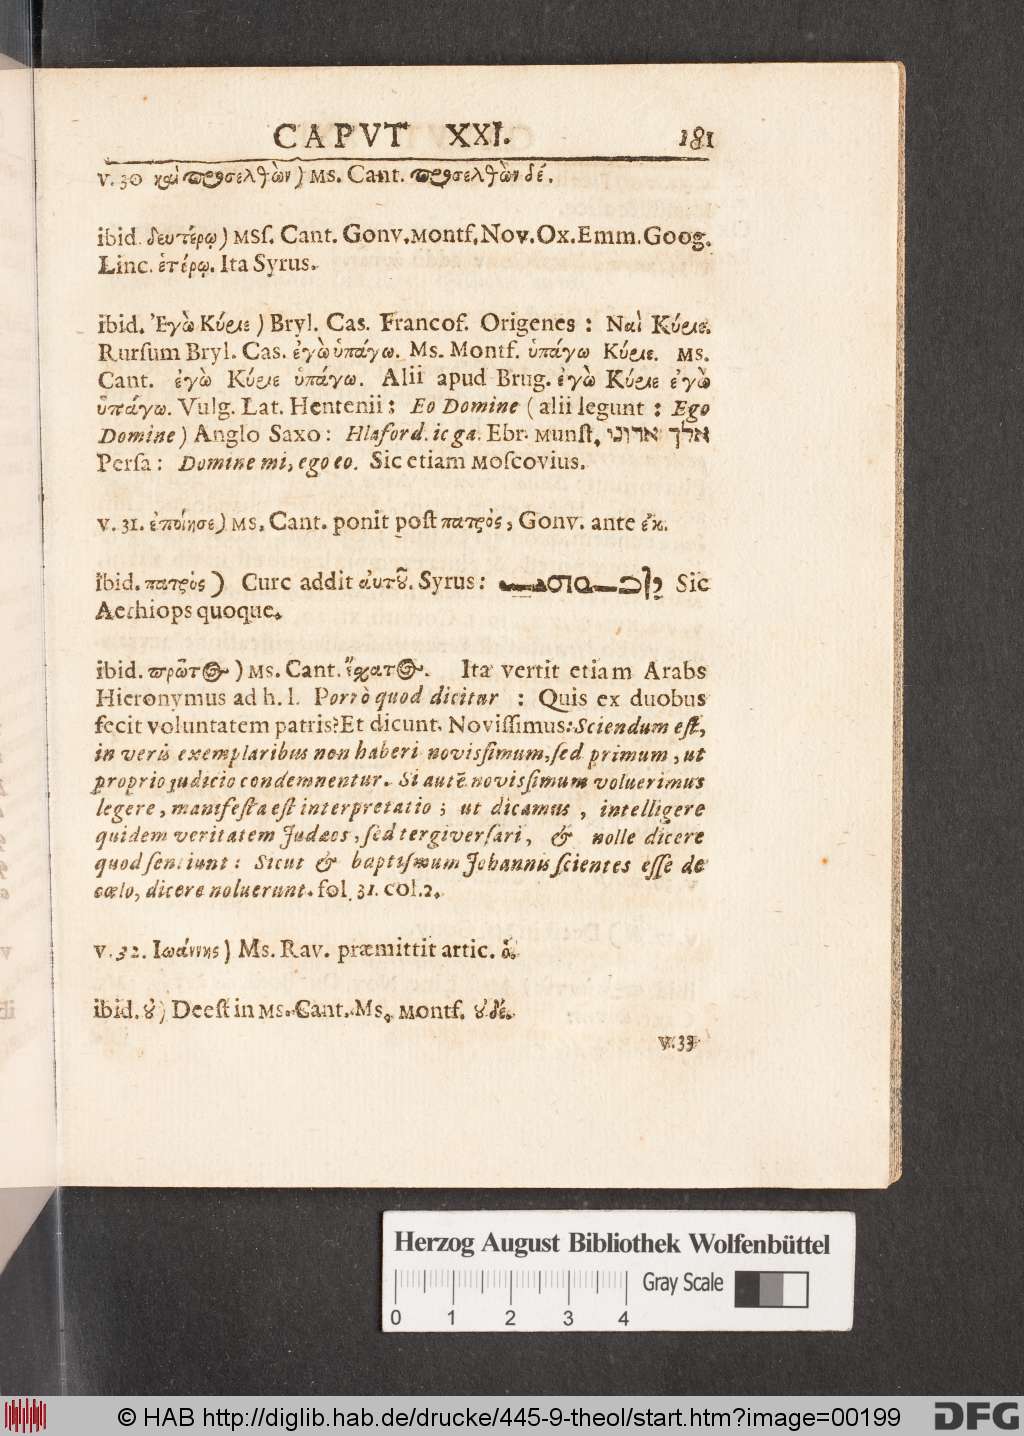 CAPVT XXI. 181
v. 30 καὶ προσελθὼν) Ms. Cant. προσελθὼν δέ.
ibid. δευτέρῳ) MSſ. Cant. Gonv. Montf. Nov. Ox. Emm. Goog.
Linc. ἑτέρῳ. Ita Syrus.
ibid. Ἐγὼ Κύριε) Bryl. Cas. Francof. Origenes : Ναὶ Κύριε.
Rurſum Bryl. Cas. ἐγὼ ὑπάγω. Ms. Montf. ὑπάγω Κύριε. Ms.
Cant. ἐγὼ Κύριε ὑπάγω. Alii apud Brug. ἐγὼ Κύριε ἐγὼ
ὑπάγω. Vulg. Lat. Hentenii : Eo Domine ( alii legunt : Ego
Domine ) Anglo Saxo : Hlaford. ic ga. Ebr. Munſt. אלך אדוני
Perſa : Domine mi, ego eo. Sic etiam Moſcovius.
v. 31. ἐποίησε) Ms. Cant. ponit poſt πατρὸς, Gonv. ante ἐκ.
ibid. πατρὸς ) Curc addit αὐτοῦ. Syrus : Sic
Aethiops quoque.
ibid. πρῶτος ) Ms. Cant. ἔσχατος. Ita vertit etiam Arabs
Hieronymus ad h. l. Porrò quod dicitur : Quis ex duobus
fecit voluntatem patris? Et dicunt. Noviſſimus: Sciendum eſt,
in veris exemplaribus non haberi noviſſimum, ſed primum, ut
proprio judicio condemnentur. Si autē noviſſimum voluerimus
legere, manifeſta eſt interpretatio ; ut dicamus , intelligere
quidem veritatem Judæos, ſed tergiverſari, & nolle dicere
quod ſentiunt : Sicut & baptiſmum Johannis ſcientes eſſe de
cœlo, dicere noluerunt. fol. 31. col. 2.
v. 32. Ιωάννης ) Ms. Rav. præmittit artic. ὁ.
ibid. οὐ ) Deeſt in Ms. Cant. Ms. Montf. οὐδέ.
v. 33
Herzog August Bibliothek Wolfenbüttel
Gray Scale
0 1 2 3 4
© HAB http://diglib.hab.de/drucke/445-9-theol/start.htm?image=00199 DFG